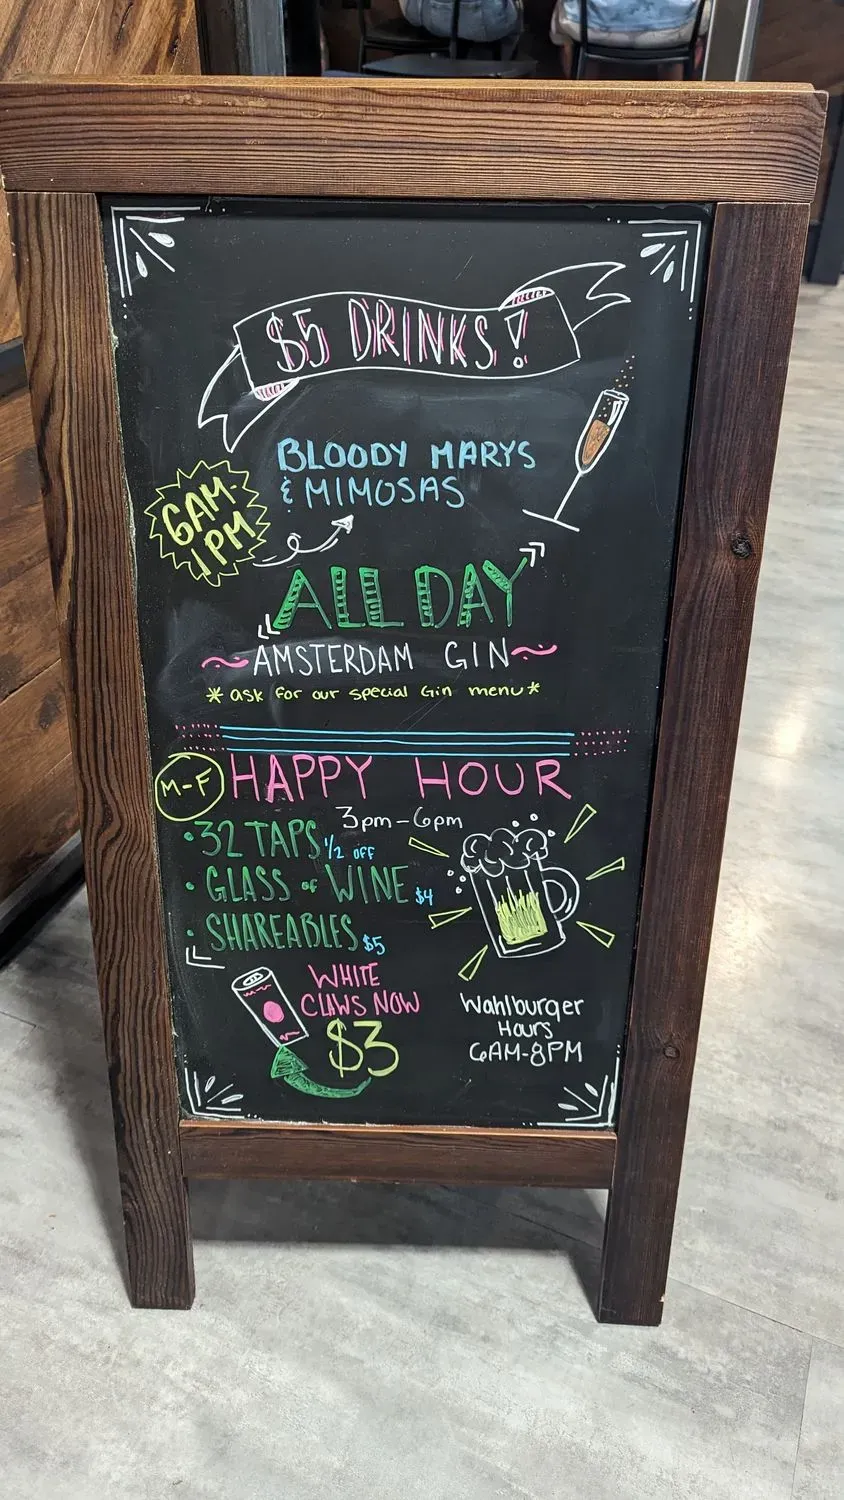 $5 DRINKS!
BLOODY MARYS
& MIMOSAS
6AM-
1PM
ALL DAY
~AMSTERDAM GIN~
* ask for our special Gin menu *
M-F HAPPY HOUR
3pm-6pm
• 32 TAPS 1/2 OFF
• GLASS OF WINE $4
• SHAREABLES $5
WHITE
CLAWS NOW
$3
Wahlburger
Hours
6AM-8PM